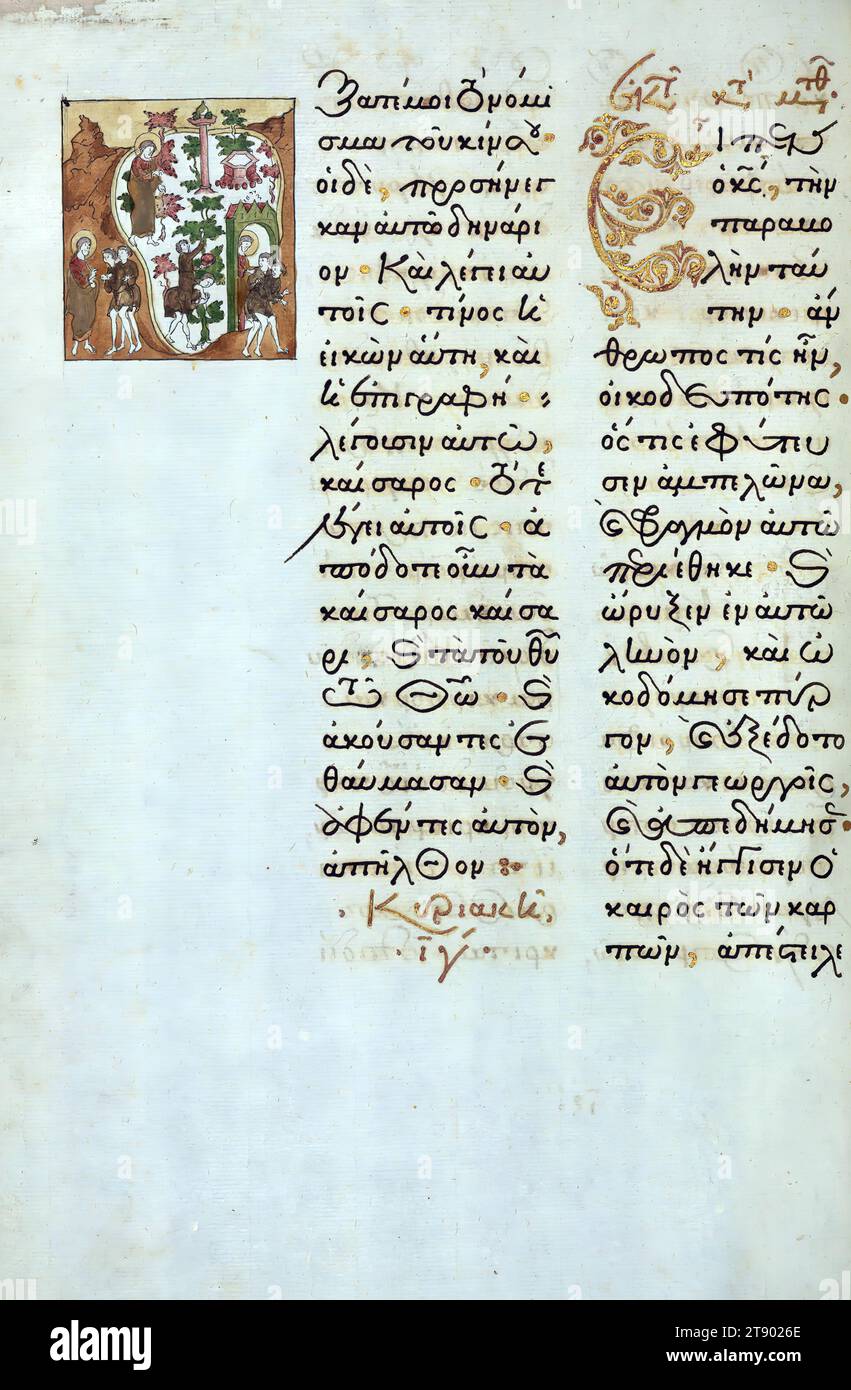 ξατέ μοι τὸ νόμι
σμα τοῦ κίνσου·
οἱ δὲ, προσήνεγ
καν αὐτῷ δηνάρι
ον· Καὶ λέγει αὐ
τοῖς· τίνος ἡ
εἰκὼν αὕτη, καὶ
ἡ ἐπιγραφή·:
λέγουσιν αὐτῷ,
καίσαρος· ὁ τότε
λέγει αὐτοῖς· ἀ
πόδοτε οὖν τὰ
καίσαρος καίσα
ρι, καὶ τὰ τοῦ θῦ
τῷ θῶ· καὶ
ἀκούσαντες ἐ
θαύμασαν· καὶ
ἀφέντες αὐτὸν,
ἀπῆλθον:·
·Κυριακὴ·
·ιγ·
Ἐκ τ κτ Μτθ·
Εἶπεν
ὁ κς, τὴν
παραβο
λὴν ταύ
την· ἄν
θρωπος τίς ἦν,
οἰκοδεσπότης·
ὅς τις ἐφύτευ
σεν ἀμπελῶνα,
καὶ φραγμὸν αὐτῷ
περιέθηκε· καὶ
ὤρυξεν ἐν αὐτῷ
ληνὸν, καὶ ᾠ
κοδόμησε πύρ
γον, καὶ ἐξέδοτο
αὐτὸν γεωργοῖς,
καὶ ἀπεδήμησεν·
ὅτε δὲ ἤγγισεν ὁ
καιρὸς τῶν καρ
πῶν, ἀπέστειλε
alamy
Image ID: 2T9026E
www.alamy.com